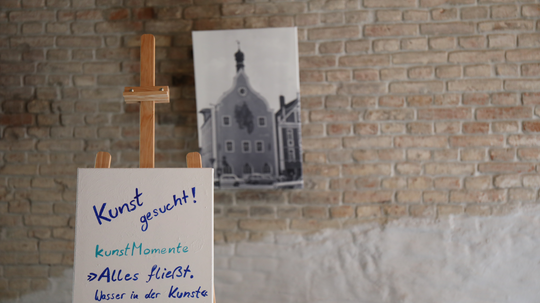 Kunst
gesucht!
kunstMomente
»Alles fließt.
Wasser in der Kunst«